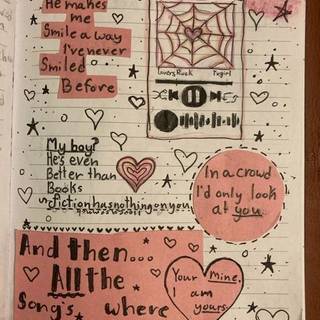 He makes
me
Smile a way
I've never
Smiled
Before
Lovers Rock
TV girl
My boy?
He's even
Better than
Books
Fiction has nothing on you
In a crowd
I'd only look
at you.
And then...
All the
Song's where
Your mine,
I am
yours